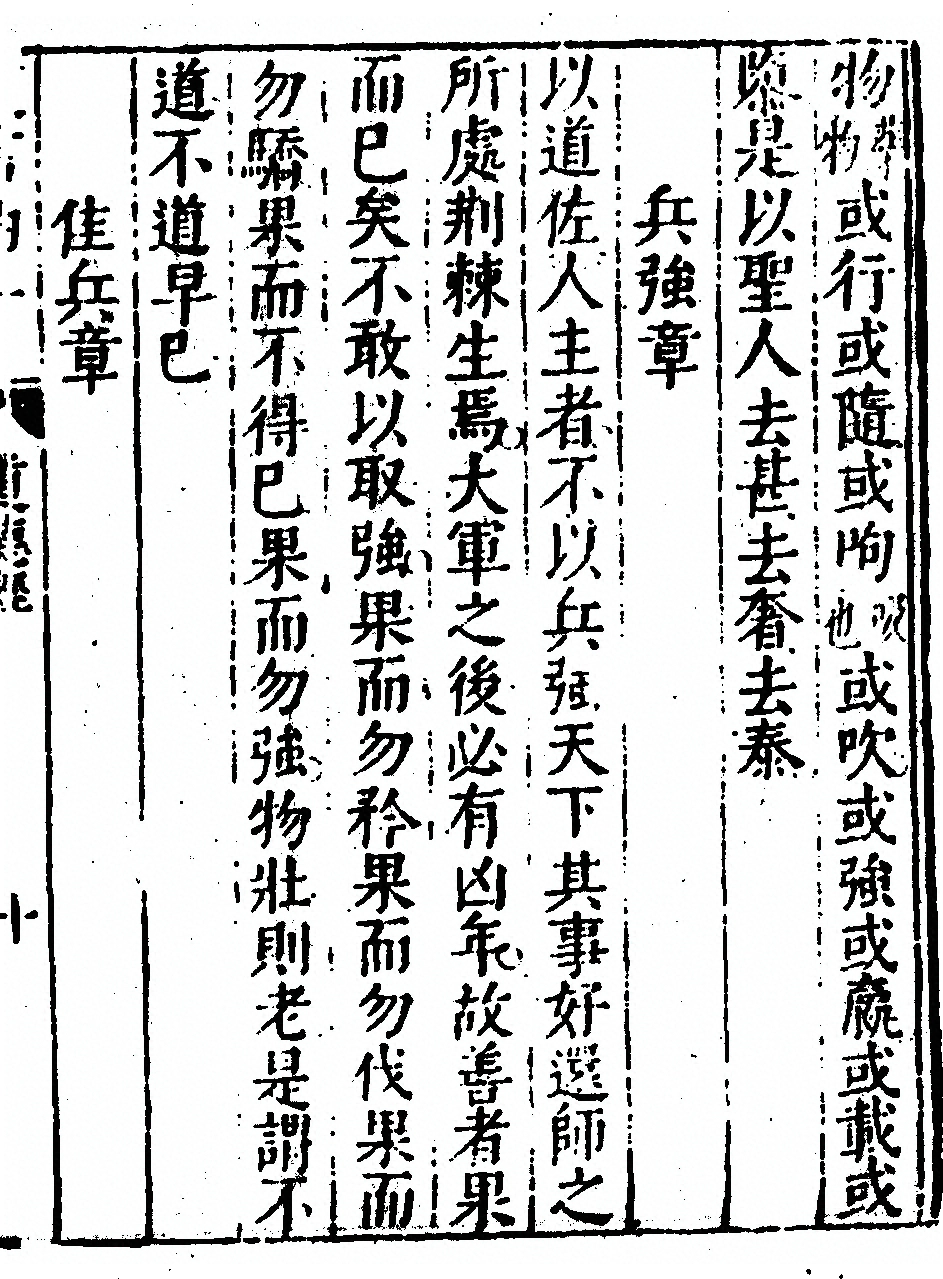 物物或行或隨或呴也或吹或強或羸或載或
隳是以聖人去甚去奢去泰
兵強章
以道佐人主者不以兵强天下其事好選師之
所處荆棘生焉大軍之後必有凶年故善者果
而巳矣不敢以取強果而勿矜果而勿伐果而
勿驕果而不得巳果而勿強物壯則老是謂不
道不道早巳
佳兵章
十